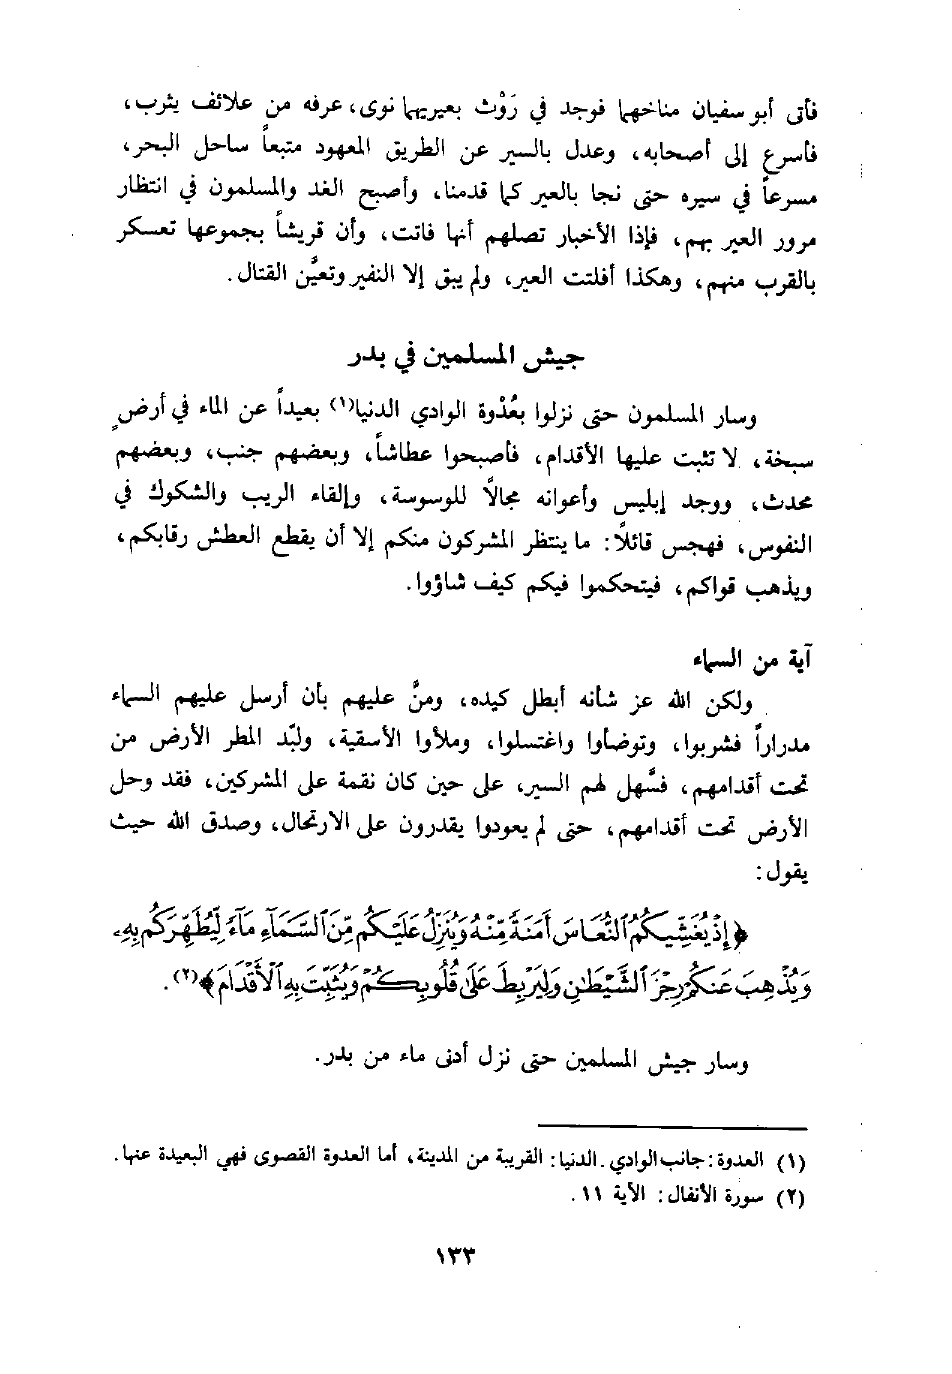 فأتى أبو سفيان مناخهما فوجد في رَوْث بعيريهما نوى، عرفه من علائف يثرب،
فأسرع إلى أصحابه، وعدل بالسير عن الطريق المعهود متبعاً ساحل البحر،
مسرعاً في سيره حتى نجا بالعير كما قدمنا، وأصبح الغد والمسلمون في انتظار
مرور العير بهم، فإذا الأخبار تصلهم أنها فاتت، وأن قريشاً بجموعها تعسكر
بالقرب منهم، وهكذا أفلتت العير، ولم يبق إلا النفير وتعيَّن القتال.
جيش المسلمين في بدر
وسار المسلمون حتى نزلوا بعُدْوة الوادي الدنيا(١) بعيداً عن الماء في أرضٍ
سبخة، لا تثبت عليها الأقدام، فأصبحوا عطاشاً، وبعضهم جنب، وبعضهم
محدث، ووجد إبليس وأعوانه مجالاً للوسوسة، وإلقاء الريب والشكوك في
النفوس، فهجس قائلاً: ما ينتظر المشركون منكم إلا أن يقطع العطش رقابكم،
ويذهب قواكم، فيتحكموا فيكم كيف شاؤوا.
آية من السماء
ولكن الله عز شأنه أبطل كيده، ومنَّ عليهم بأن أرسل عليهم السماء
مدراراً فشربوا، وتوضأوا واغتسلوا، وملأوا الأسقية، ولبّد المطر الأرض من
تحت أقدامهم، فسَّهل لهم السير، على حين كان نقمة على المشركين، فقد وحل
الأرض تحت أقدامهم، حتى لم يعودوا يقدرون على الارتحال، وصدق الله حيث
يقول:
﴿إِذْ يُغَشِّيكُمُ ٱلنُّعَاسَ أَمَنَةً مِّنْهُ وَيُنَزِّلُ عَلَيْكُم مِّنَ ٱلسَّمَآءِ مَآءً لِّيُطَهِّرَكُم بِهِۦ
وَيُذْهِبَ عَنكُمْ رِجْزَ ٱلشَّيْطَٰنِ وَلِيَرْبِطَ عَلَىٰ قُلُوبِكُمْ وَيُثَبِّتَ بِهِ ٱلْأَقْدَامَ﴾(٢).
وسار جيش المسلمين حتى نزل أدنى ماء من بدر.
(١) العدوة: جانب الوادي. الدنيا: القريبة من المدينة، أما العدوة القصوى فهي البعيدة عنها.
(٢) سورة الأنفال: الآية ١١.
١٣٣